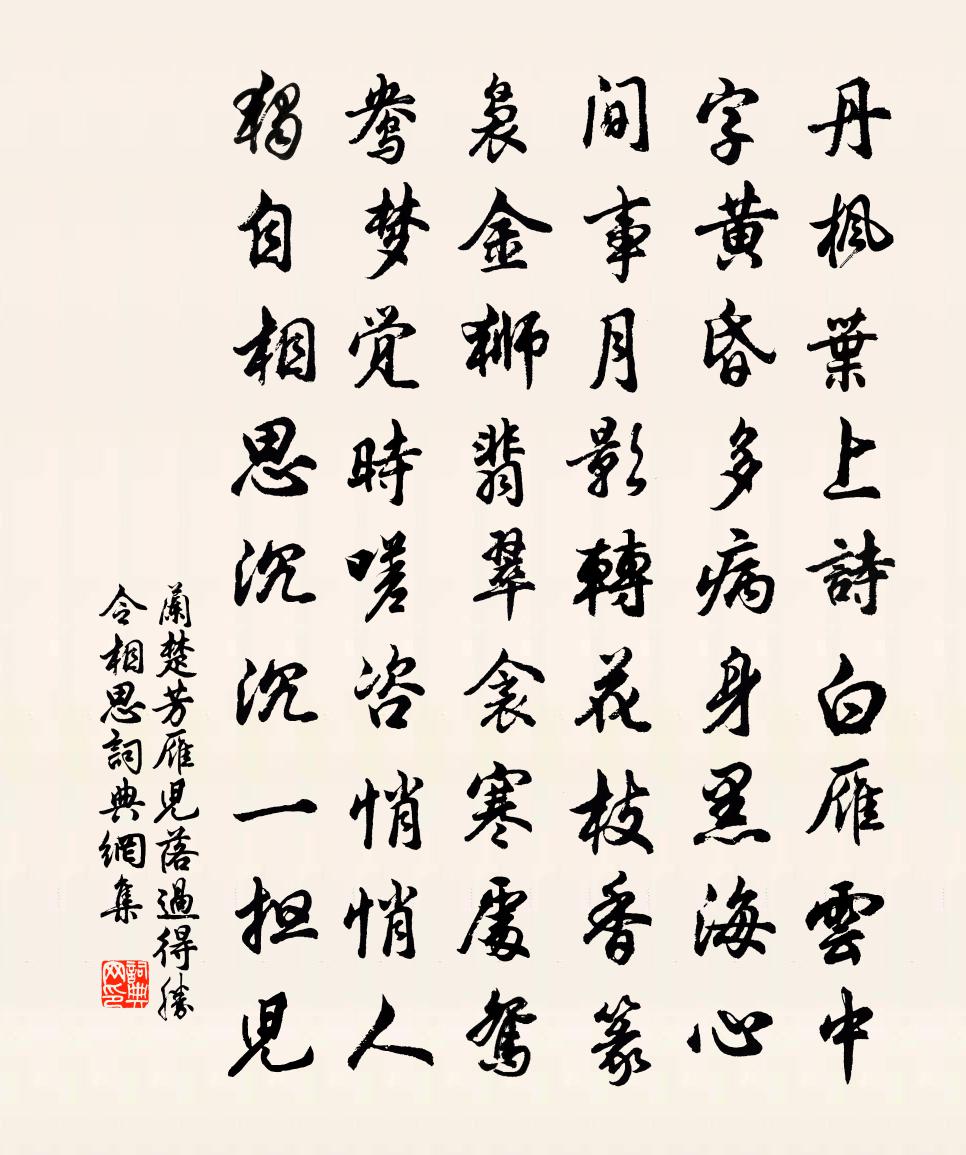 丹枫葉上詩白雁雲中
字黄昏多病身黑海心
间事月影轉花枝香篆
袅金狮翡翠衾寒處鴛
鸯梦觉時嗟咨悄悄人
獨自相思沉沉一担児
蘭楚芳雁児落過得勝
令相思詞典網集
詞典
网印